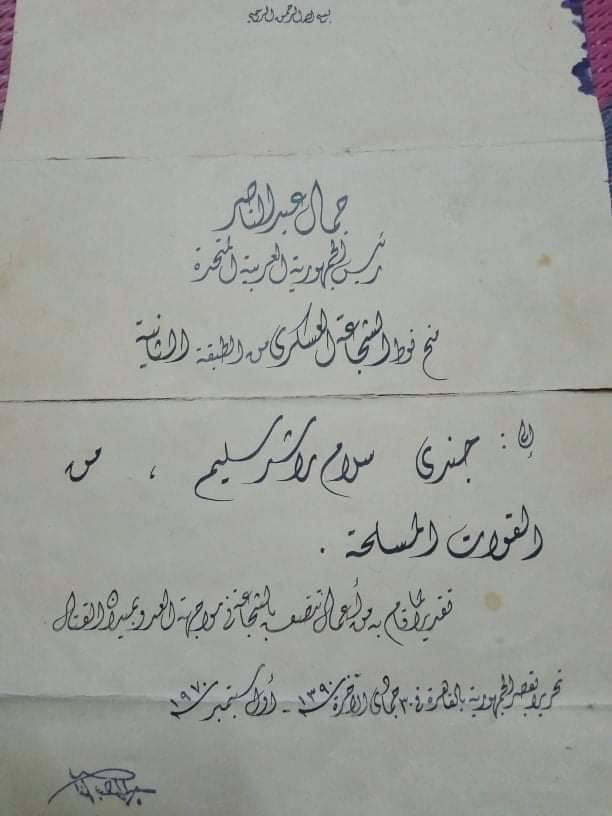 بسم الله الرحمن الرحيم
جمال عبد الناصر
رئيس الجمهورية العربية المتحدة
منح نوط الشجاعة العسكرى من الطبقة الثانية
إلى : جندى سلام راشد سليم ، من
القوات المسلحة .
تقديرا لما قام به من أعمال تتصف بالشجاعة فى مواجهة العدو بميدان القتال
تحريرا بقصر الجمهورية بالقاهرة فى ٣٠ جمادى الآخرة ١٣٩٠ - أول سبتمبر ١٩٧٠